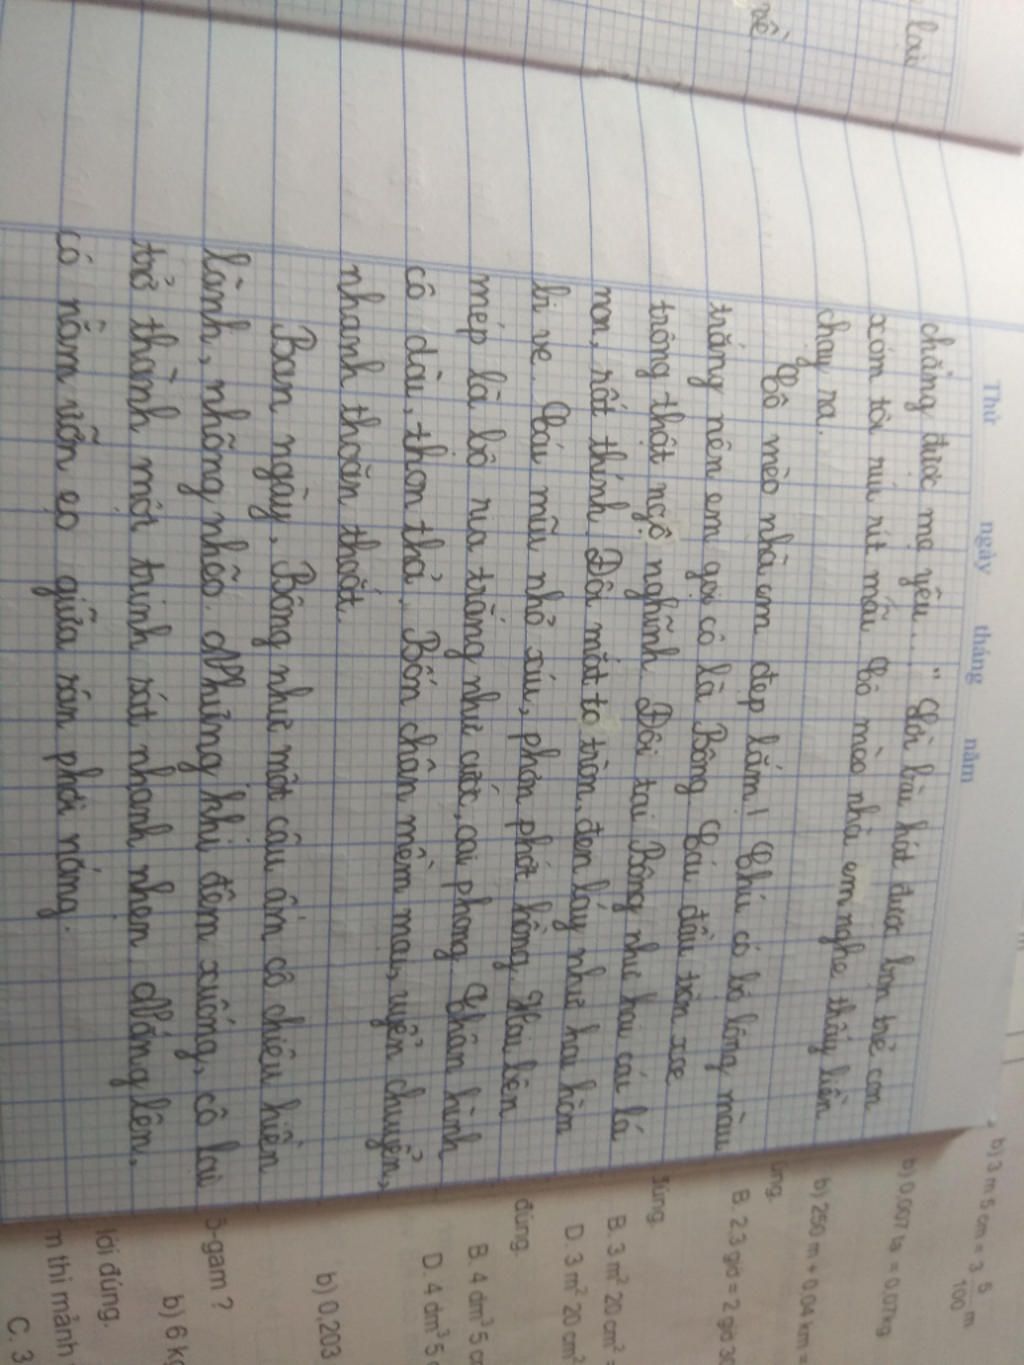 lại
về
Thứ ngày tháng năm
chẳng được mẹ yêu... " Lời bài hát được bọn trẻ con
xóm tôi ríu rít mãi. Cô mèo nhà em nghe thấy liền
chạy ra.
Cô mèo nhà em đẹp lắm! Chú có bộ lông màu
trắng nên em gọi cô là Bông. Cái đầu tròn xoe
trông thật ngộ nghĩnh. Đôi tai Bông như hai cái lá
non, rất thính. Đôi mắt to tròn, đen láy như hai hòn
bi ve. Cái mũi nhỏ xíu, phơn phớt hồng. Hai bên
mép là bộ ria trắng như cước, oai phong. Thân hình
cô dài, thon thả. Bốn chân mềm mại, uyển chuyển,
nhanh thoăn thoắt.
Ban ngày, Bông như một cậu ấm cô chiêu hiền
lành, nhõng nhẽo. Nhưng khi đêm xuống, cô lại
trở thành một trinh sát nhanh nhẹn. Nắng lên,
cô nằm uỡn ẹo giữa sân phơi nắng.
b) 3 m 5 cm = 3 5/100 m
b) 0,007 ta = 0,07kg
b) 250 m + 0,04 km =
úng.
B. 2,3 giờ = 2 giờ 30
đúng.
B. 3 m² 20 cm² =
D. 3 m² 20 cm²
đúng.
B. 4 dm³ 5 cm
D. 4 dm³ 5
b) 0,203
ô-gam ?
b) 6 kg
lời đúng.
m thi mảnh
C. 3